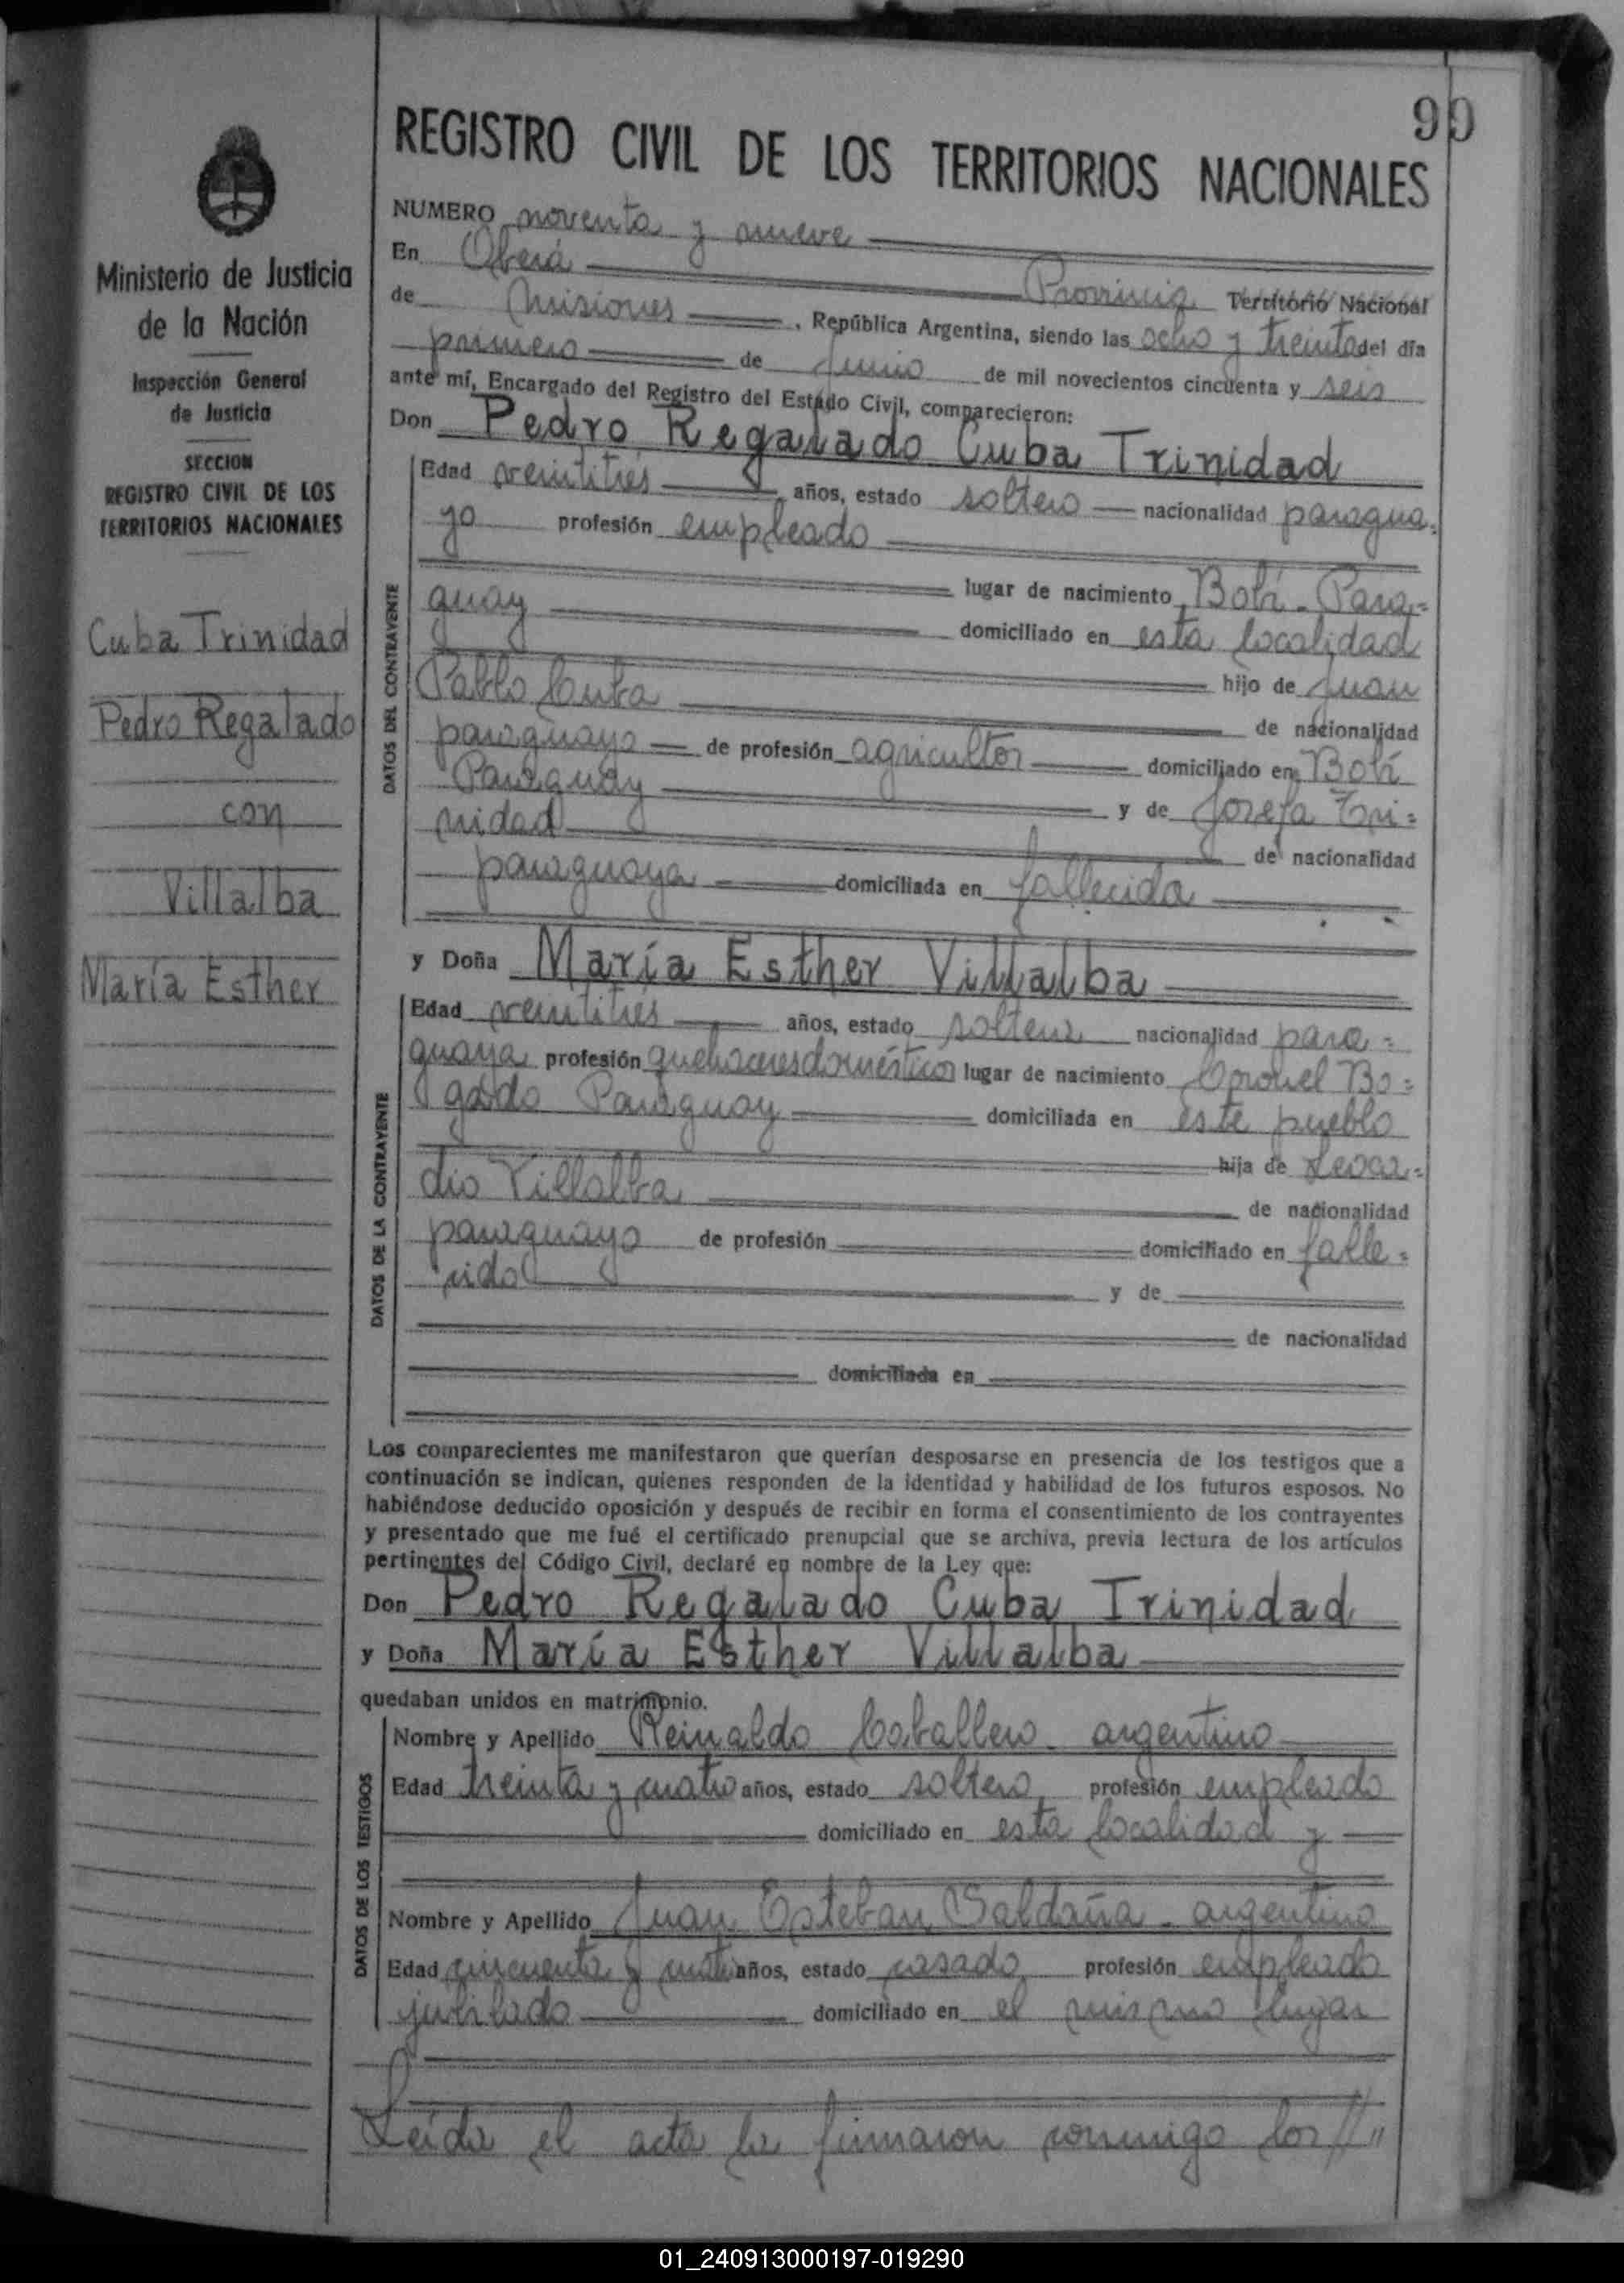 99
REGISTRO CIVIL DE LOS TERRITORIOS NACIONALES
Ministerio de Justicia
de la Nación
Inspección General
de Justicia
SECCION
REGISTRO CIVIL DE LOS
TERRITORIOS NACIONALES
Cuba Trinidad
Pedro Regalado
con
Villalba
María Esther
NUMERO noventa y nueve
En Oberá Provincia Territorio Nacional
de Misiones, República Argentina, siendo las ocho y treinta del día
primero de Junio de mil novecientos cincuenta y seis
ante mí, Encargado del Registro del Estado Civil, comparecieron:
Don Pedro Regalado Cuba Trinidad
DATOS DEL CONTRAYENTE
Edad veintitrés años, estado soltero nacionalidad paragua=
yo profesión empleado
lugar de nacimiento Bobí - Para=
guay domiciliado en esta localidad
hijo de Juan
Pablo Cuba de nacionalidad
paraguayo de profesión agricultor domiciliado en Bobí
Paraguay y de Josefa Tri=
nidad de nacionalidad
paraguaya domiciliada en fallecida
y Doña María Esther Villalba
DATOS DE LA CONTRAYENTE
Edad veintitrés años, estado soltera nacionalidad para=
guaya profesión quehaceres domésticos lugar de nacimiento Coronel Bo=
gado Paraguay domiciliada en este pueblo
hija de Leoca=
dio Villalba de nacionalidad
paraguayo de profesión domiciliado en falle=
cido y de
de nacionalidad
domiciliada en
Los comparecientes me manifestaron que querían desposarse en presencia de los testigos que a
continuación se indican, quienes responden de la identidad y habilidad de los futuros esposos. No
habiéndose deducido oposición y después de recibir en forma el consentimiento de los contrayentes
y presentado que me fué el certificado prenupcial que se archiva, previa lectura de los artículos
pertinentes del Código Civil, declaré en nombre de la Ley que:
Don Pedro Regalado Cuba Trinidad
y Doña María Esther Villalba
quedaban unidos en matrimonio.
DATOS DE LOS TESTIGOS
Nombre y Apellido Reinaldo Caballero - argentino
Edad treinta y cuatro años, estado soltero profesión empleado
domiciliado en esta localidad y
Nombre y Apellido Juan Esteban Saldaña - argentino
Edad cincuenta y cuatro años, estado casado profesión empleado
jubilado domiciliado en el mismo lugar
Leída el acta la firmaron conmigo los //"
01_240913000197-019290